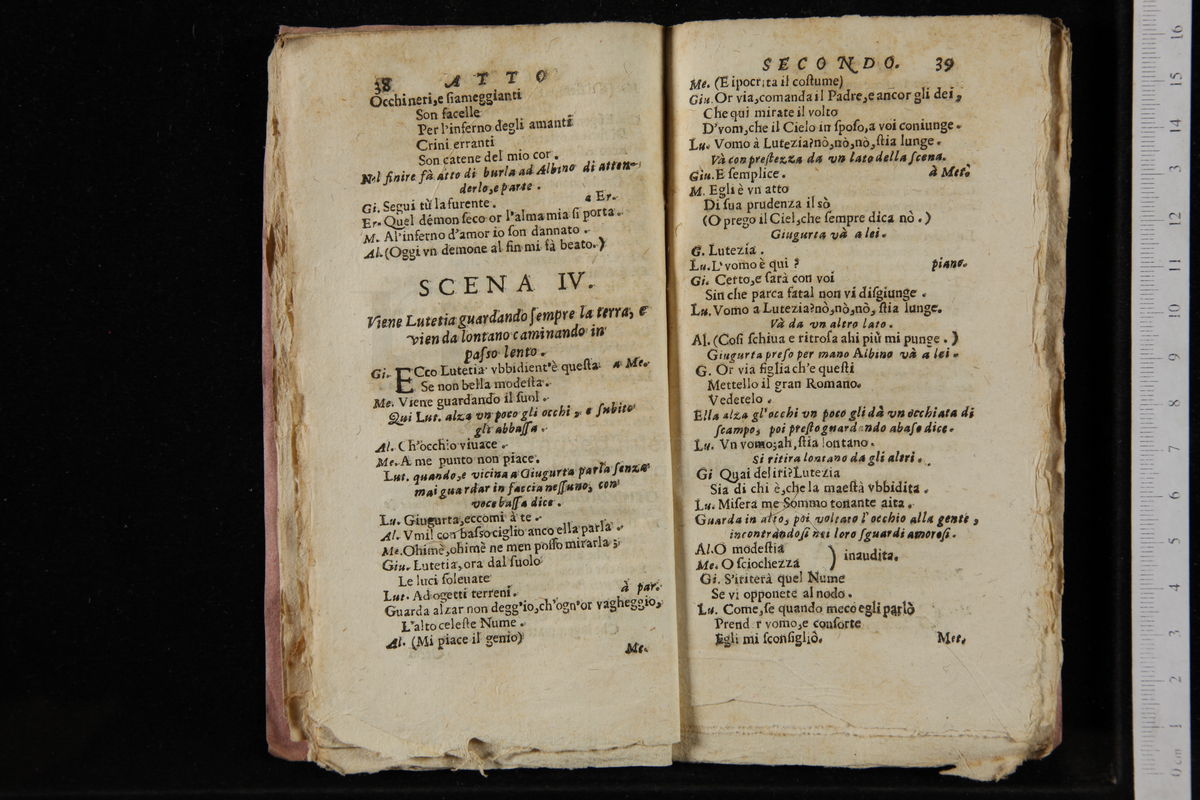 38 ATTO
Occhi neri, e fiameggianti
Son facelle
Per l'inferno degli amanti
Crini erranti
Son catene del mio cor.
Nel finire fà atto di burla ad Albino di atten-
derlo, e parte.
Gi. Segui tù la furente. a Er.
Er. Quel démon seco or l'alma mia si porta.
M. Al'inferno d'amor io son dannato.
Al. (Oggi vn demone al fin mi fà beato.)
SCENA IV.
Viene Lutetia guardando sempre la terra, e
vien da lontano caminando in
passo lento.
Gi. ECco Lutetia vbbidient'è questa a Me.
Se non bella modesta.
Me. Viene guardando il suol.
Qui Lut. alza vn poco gli occhi, e subito
gli abbassa.
Al. Ch'occhio viuace.
Me. A me punto non piace.
Lut. quando, e vicina a Giugurta parla senza
mai guardar in faccia nessuno, con
voce bassa dice.
Lu. Giugurta, eccomi à te.
Al. Vmil con basso ciglio anco ella parla.
Me. Ohimè, ohimè ne men posso mirarla;
Giu. Lutetia, ora dal suolo
Le luci soleuate
Lut. Ad ogetti terreni. à par.
Guarda alzar non degg'io, ch'ogn'or vagheggio,
L'alto celeste Nume.
Al. (Mi piace il genio)
Me.
SECONDO. 39
Me. (E ipocrita il costume)
Giu. Or via, comanda il Padre, e ancor gli dei,
Che qui mirate il volto
D'vom, che il Cielo in sposo, a voi coniunge.
Lu. Vomo à Lutezia? nò, nò, nò, stia lunge.
Và con prestezza da vn lato della scena.
Giu. E semplice. à Met.
M. Egli è vn atto
Di sua prudenza il sò
(O prego il Ciel, che sempre dica nò.)
Giugurta và a lei.
G. Lutezia.
Lu. L'vomo è qui? piano.
Gi. Certo, e sarà con voi
Sin che parca fatal non vi disgiunge.
Lu. Vomo a Lutezia? nò, nò, nò, stia lunge.
Và da vn altro lato.
Al. (Così schiua e ritrosa ahi più mi punge.)
Giugurta preso per mano Albino và a lei.
G. Or via figlia ch'e questi
Mettello il gran Romano.
Vedetelo.
Ella alza gl'occhi vn poco gli dà vn occhiata di
scampo, poi presto guardando abaso dice.
Lu. Vn vomo; ah, stia lontano.
Si ritira lontano da gli altri.
Gi Quai deliri? Lutezia
Sia di chi è, che la maestà vbbidita.
Lu. Misera me Sommo tonante aita.
Guarda in alto, poi voltato l'occhio alla gente,
incontrandosi nei loro sguardi amorosi.
Al. O modestia
Me. O sciochezza ) inaudita.
Gi. S'iriterà quel Nume
Se vi opponete al nodo.
Lu. Come, se quando meco egli parlò
Prender vomo, e consorte
Egli mi sconsigliò. Met.
0 cm 1 2 3 4 5 6 7 8 9 10 11 12 13 14 15 16